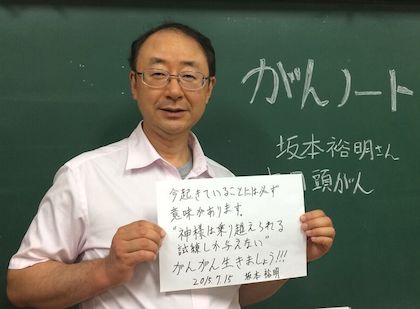 がんノート
坂本裕明さん
頭がん
今起きていることには必ず
意味があります。
"神様は乗り越えられる
試練しか与えない"
がんがん生きましょう!!!
2015.7.15 坂本 裕明